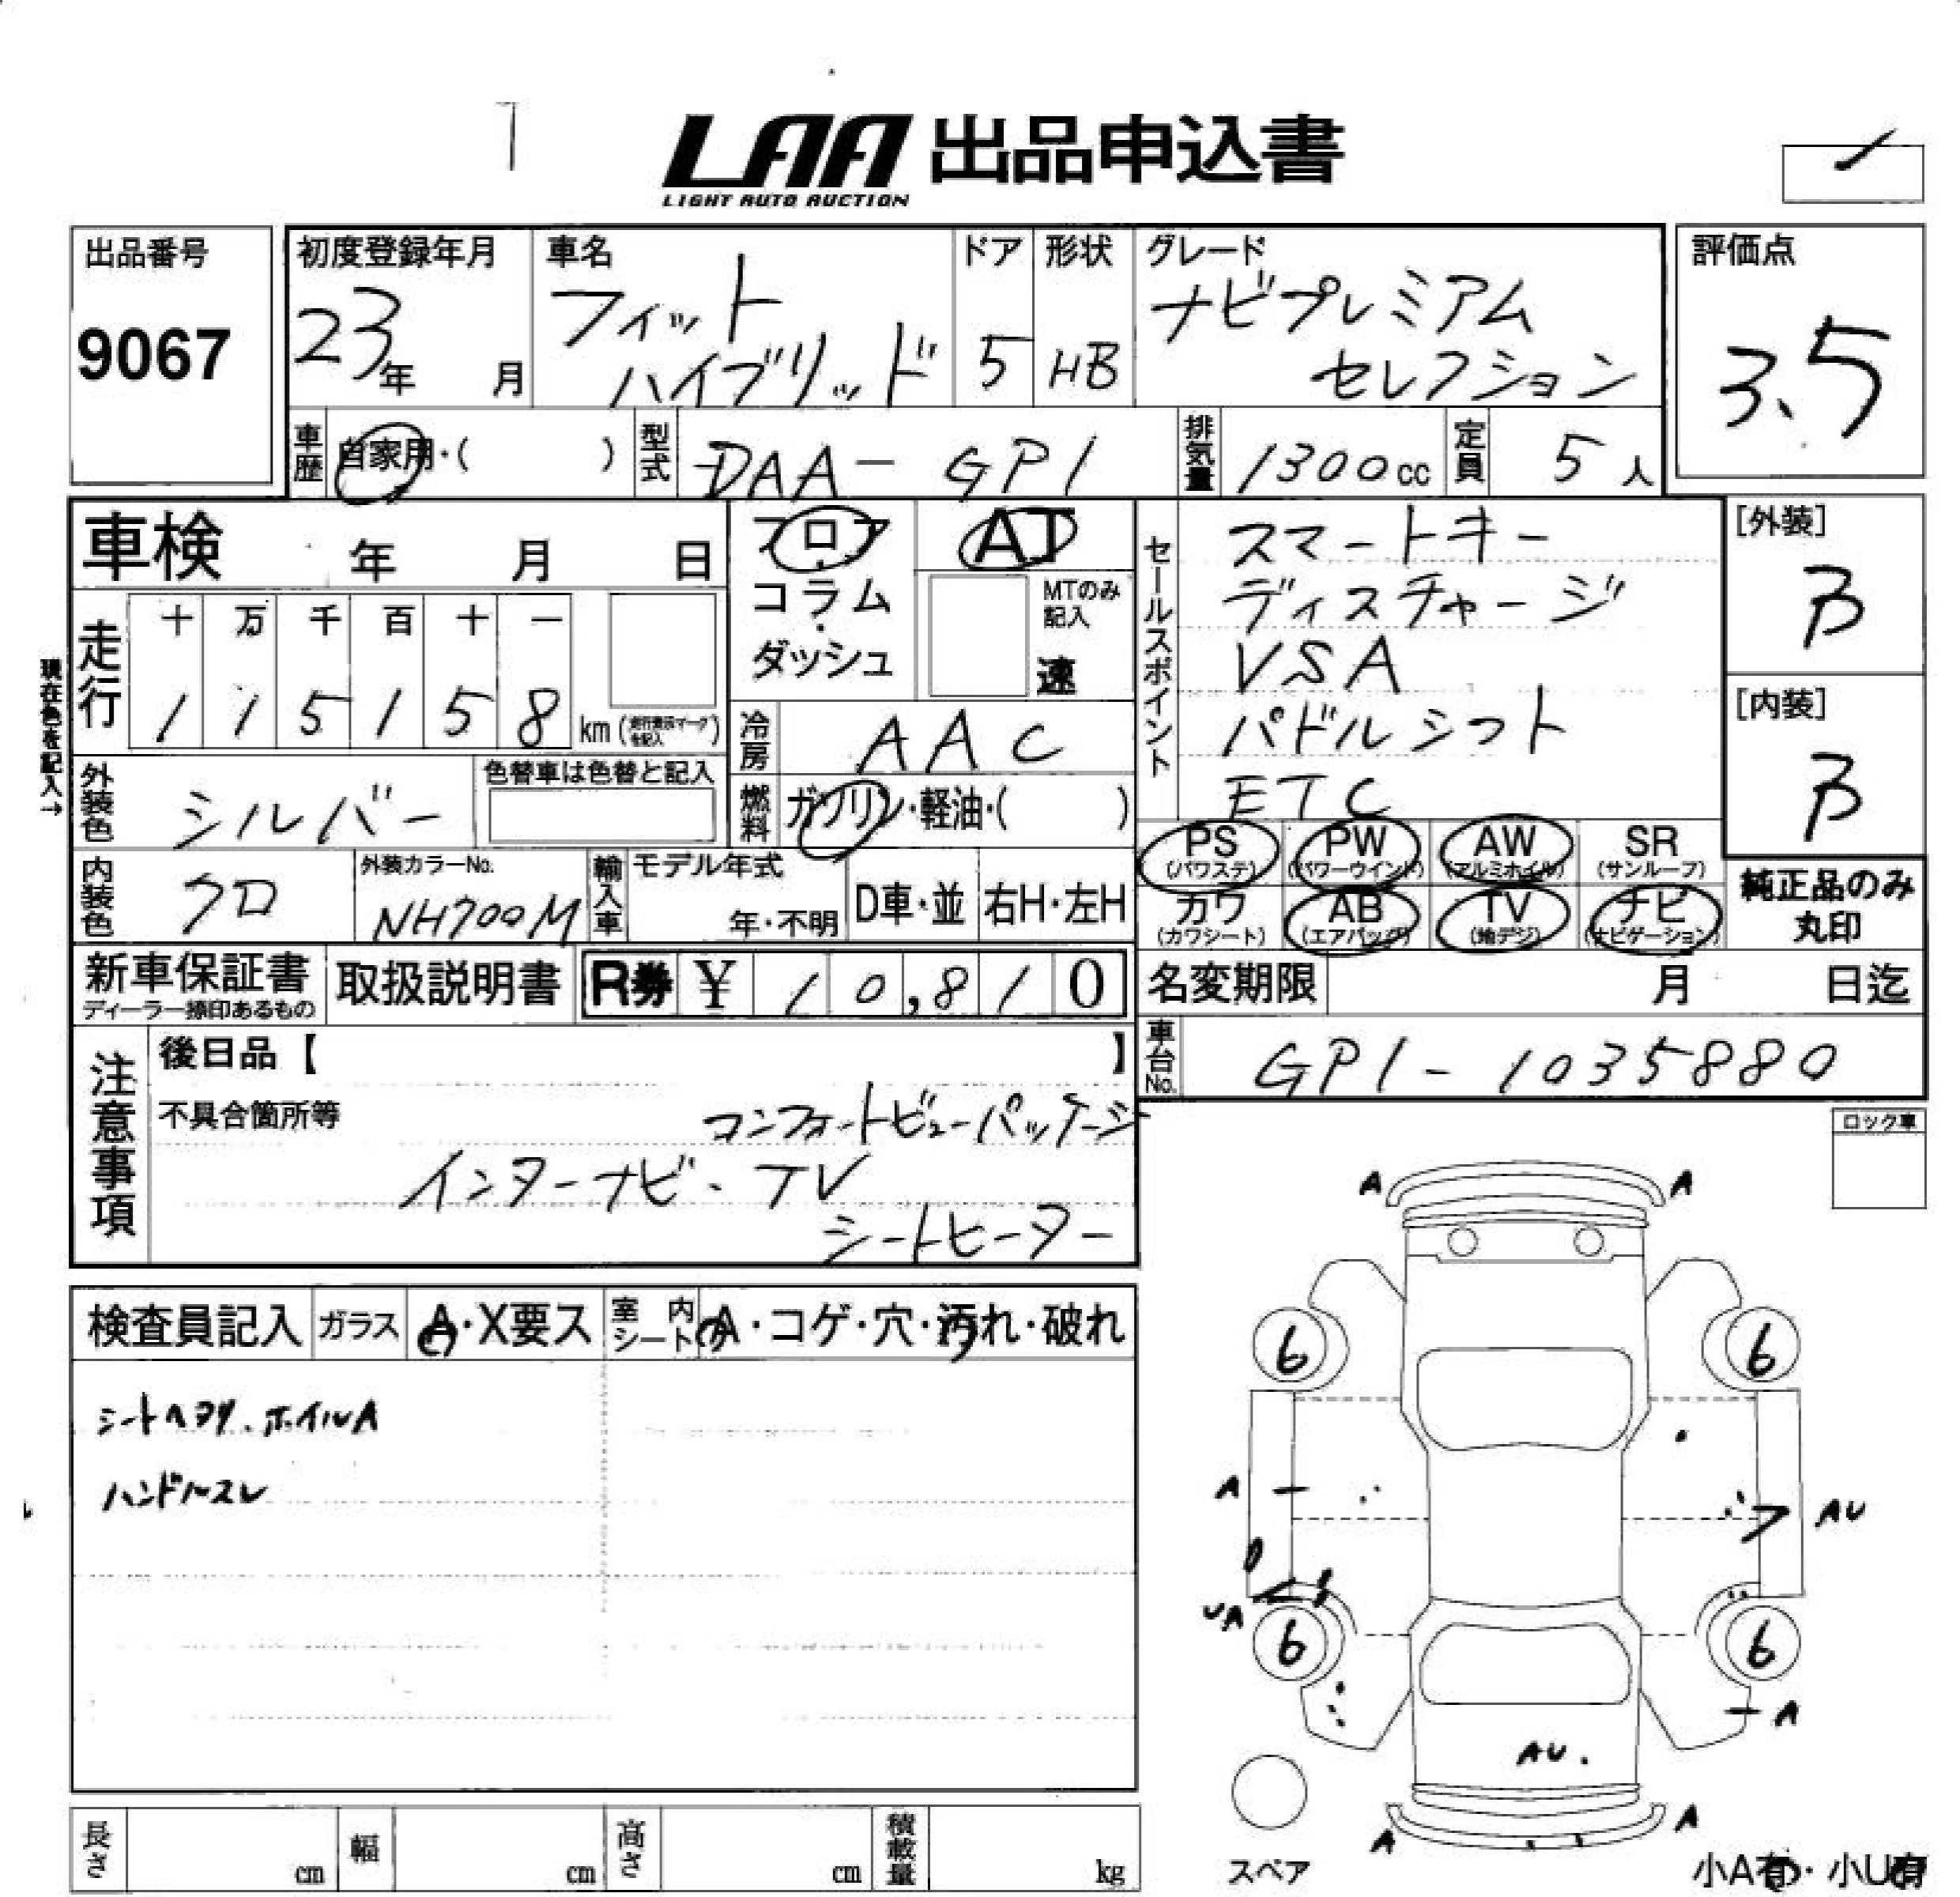 LAA 出品申込書
LIGHT AUTO AUCTION
出品番号
9067
初度登録年月
23年 月
車名
フィット
ハイブリッド
ドア
5
形状
HB
グレード
ナビプレミアム
セレクション
評価点
3.5
車歴 自家用・( )
型式 DAA-GP1
排気量 1300cc
定員 5人
車検 年 月 日
フロア
コラム
ダッシュ
AT
MTのみ
記入
速
セールスポイント
スマートキー
ディスチャージ
VSA
パドルシフト
ETC
[外装]
B
[内装]
B
現在色を記入→
走行
十 万 千 百 十 一
1 1 5 1 5 8 km
冷房 AAC
外装色 シルバー
色替車は色替と記入
燃料 ガソリン・軽油・( )
PS
(パワステ)
PW
(パワーウインド)
AW
(アルミホイル)
SR
(サンルーフ)
カワ
(カワシート)
AB
(エアバッグ)
TV
(地デジ)
ナビ
(ナビゲーション)
純正品のみ
丸印
内装色 クロ
外装カラーNo.
NH700M
輸入車
モデル年式
年・不明
D車・並
右H・左H
新車保証書
ディーラー捺印あるもの
取扱説明書
R券 ¥ 10,810
名変期限 月 日迄
車台No. GP1-1035880
注意事項
後日品【 】
不具合箇所等
コンフォートビューパッケージ
インターナビ・TV
シートヒーター
ロック車
検査員記入
ガラス A・X要ス
室内シート A・コゲ・穴・汚れ・破れ
シートヘタリ、ホイルA
ハンドルスレ
A A
6 6
A AU
UA
6 6
A
AU
A A
スペア
小A有・小U有
長さ cm
幅 cm
高さ cm
積載量 kg